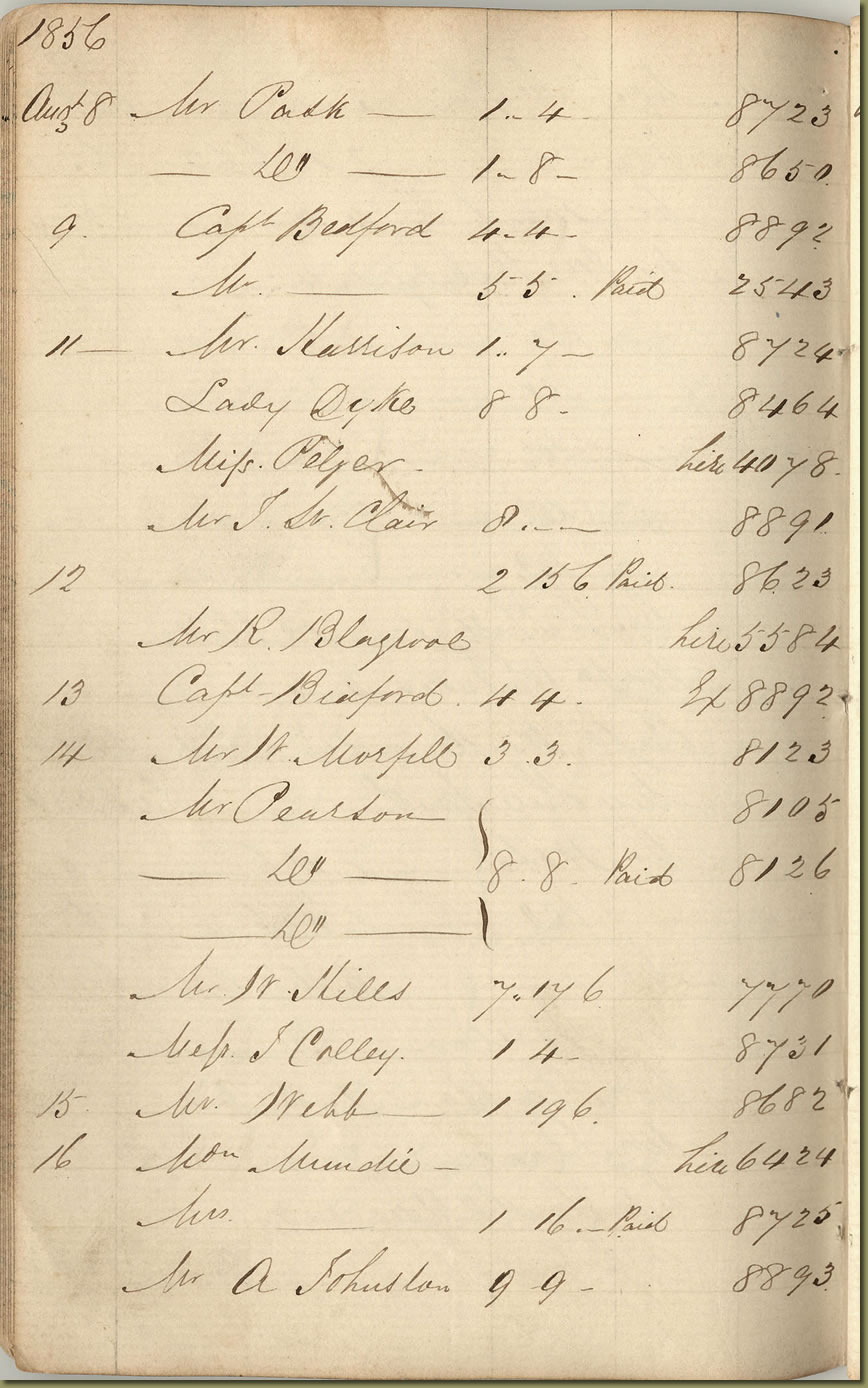 1856
Augt 8 Mr Pask — 1 .. 4 - 8723
— Do — 1 - 8 - 8650
9. Capt Bedford 4 - 4 - 8892
Mr. — 5 5 . Paid 2543
11 — Mr. Harrison 1 .. 7 - 8724
Lady Dyke 8 8 - 8464
Miss. Pelzer - hire 4078
Mr J. St. Clair 8 . - - 8891
12 2 15 6 Paid. 8623
Mr R. Blagrove hire 5584
13 Capt - Binford. 4 4 . Ex 8892
14 Mr W. Morfill 3 . 3 . 8123
Mr Pearson — 8105
— Do — 8 . 8 - Paid 8126
— Do —
Mr. W. Hills 7 . 17 6 7770
Mess. J Colley. 1 4 - 8731
15 Mr. Webb — 1 19 6. 8682
16 Mdn Mundie - hire 6424
Mrs. — 1 16 . - Paid 8725
Mr A Johnston 9 9 - 8893